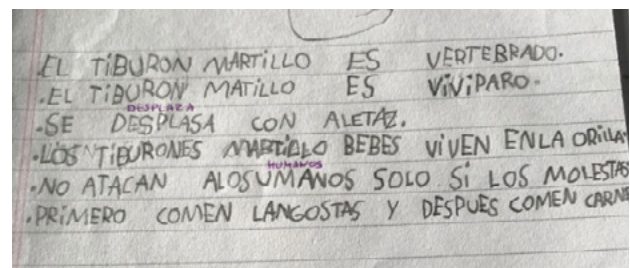 .EL TiBURON MARTiLLO ES VERTEBRADO.
.EL TiBURON MATiLLO ES ViViPARO.
DESPLAZA
.SE DESPLASA CON ALETAZ.
.LOS TiBURONES MARTiLLO BEBES ViVEN ENLA ORiLLA
HUMANOS
.NO ATACAN ALOSUMANOS SOLO Si LOS MOLESTAS
.PRiMERO COMEN LANGOSTAS Y DESPUES COMEN CARNE